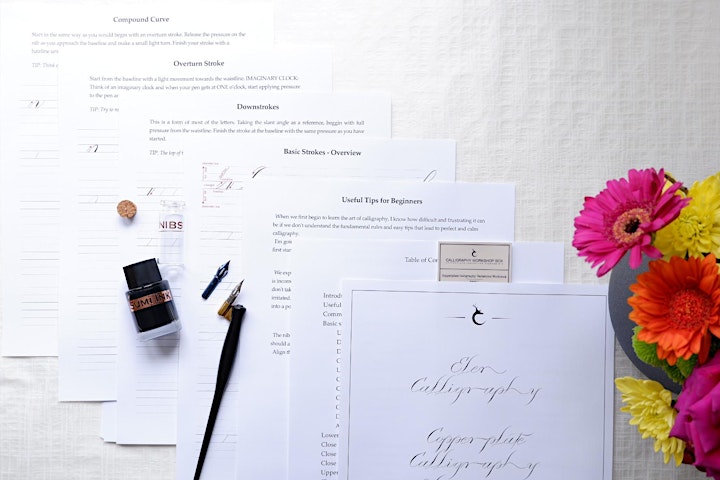 Compound Curve
Start in the same way as you would begin with an overturn stroke. Release the pressure on the
nib as you approach the baseline and make a small light turn. Finish your stroke with a
hairline
TIP: Think
Overturn Stroke
Start from the baseline with a light movement towards the waistline. IMAGINARY CLOCK:
Think of an imaginary clock and when your pen gets at ONE o'clock, start applying pressure
to the pen
TIP: Try to
Downstrokes
This is a form of most of the letters. Taking the slant angle as a reference, beggin with full
pressure from the waistline. Finish the stroke at the baseline with the same pressure as you have
started.
TIP: The top of
Basic Strokes - Overview
Useful Tips for Beginners
When we first begin to learn the art of calligraphy, I know how difficult and frustrating it can
be if we don't understand the fundamental rules and easy tips that lead to perfect and calm
calligraphy.
I'm
first
We
is
don't
irritated.
into a
The nib
should a
Align th
Table of Con
CALLIGRAPHY WORKSHOP BOX
Introd
Useful
Comm
Basic s
L
D
D
L
C
C
C
D
A
Lower
Close
Close
Close
NIBS
SUMI INK
Elen
Calligraphy
Copperplate
Calligraphy